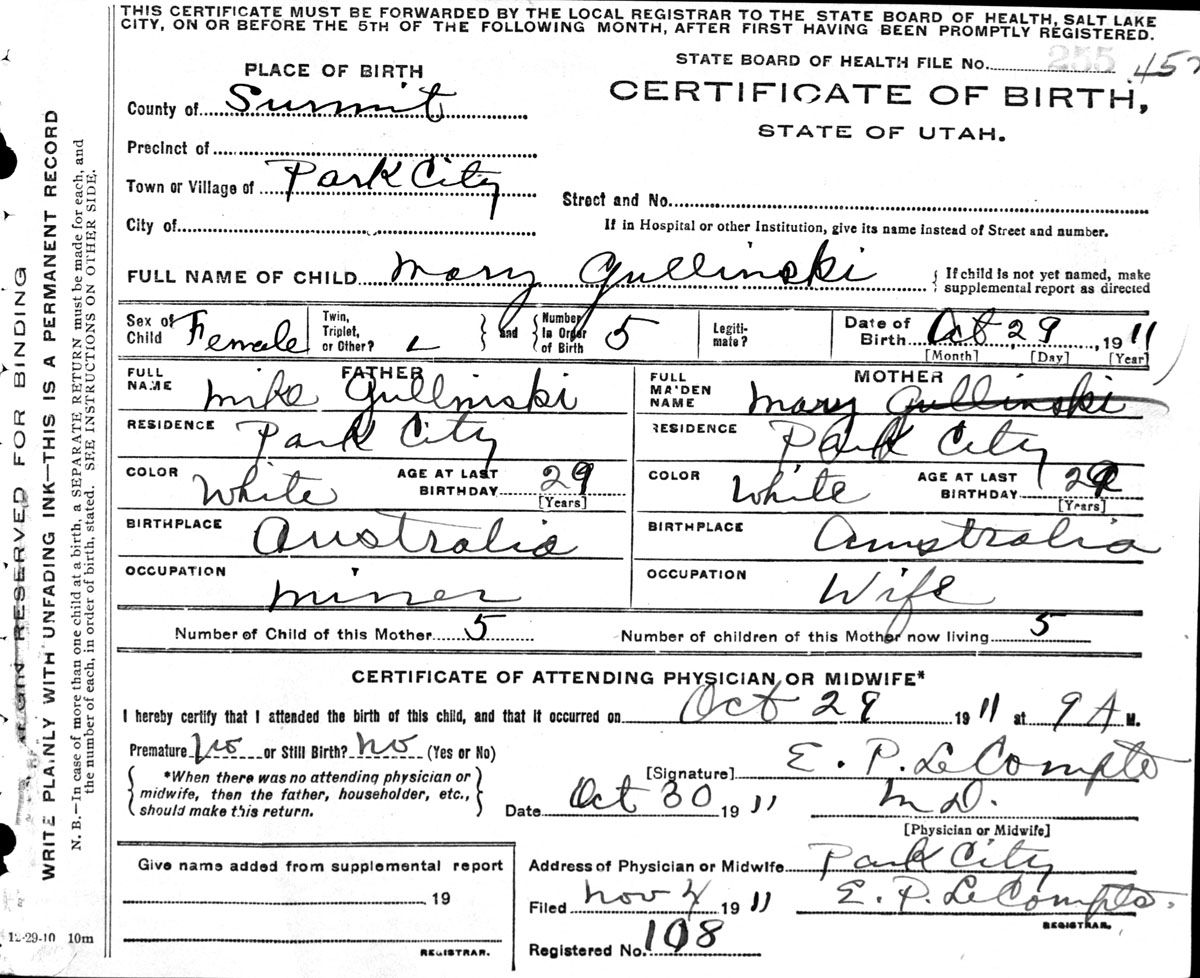 THIS CERTIFICATE MUST BE FORWARDED BY THE LOCAL REGISTRAR TO THE STATE BOARD OF HEALTH, SALT LAKE
CITY, ON OR BEFORE THE 5TH OF THE FOLLOWING MONTH, AFTER FIRST HAVING BEEN PROMPTLY REGISTERED.
STATE BOARD OF HEALTH FILE No. 255
CERTIFICATE OF BIRTH,
STATE OF UTAH.
PLACE OF BIRTH
County of Summit
Precinct of
Town or Village of Park City
Street and No.
City of
If in Hospital or other Institution, give its name instead of Street and number.
FULL NAME OF CHILD Mary Gullinski { If child is not yet named, make
supplemental report as directed
Sex of Child Female
Twin, Triplet, or Other?
} and { Number in Order of Birth 5
Legiti-mate?
Date of Birth Oct 29, 1911
[Month] [Day] [Year]
FATHER
FULL NAME Mike Gullniski
RESIDENCE Park City
COLOR White AGE AT LAST BIRTHDAY 29
[Years]
BIRTHPLACE Australia
OCCUPATION miner
MOTHER
FULL MAIDEN NAME Mary Gullinski
RESIDENCE Park City
COLOR White AGE AT LAST BIRTHDAY
[Years]
BIRTHPLACE Australia
OCCUPATION Wife
Number of Child of this Mother 5 Number of children of this Mother now living 5
CERTIFICATE OF ATTENDING PHYSICIAN OR MIDWIFE*
I hereby certify that I attended the birth of this child, and that it occurred on Oct 29 1911 at 9 A M.
Premature no or Still Birth? no (Yes or No)
{ *When there was no attending physician or
midwife, then the father, householder, etc.,
should make this return. }
[Signature] E. P. LeCompte
Date Oct 30 1911 M D.
[Physician or Midwife]
Address of Physician or Midwife Park City
Filed Nov 4 1911 E. P. LeCompte.
REGISTRAR.
Registered No. 108
Give name added from supplemental report
19
REGISTRAR.
12-29-10 10m
MARGIN RESERVED FOR BINDING
WRITE PLAINLY WITH UNFADING INK—THIS IS A PERMANENT RECORD
N. B.—In case of more than one child at a birth, a SEPARATE RETURN must be made for each, and
the number of each, in order of birth, stated. SEE INSTRUCTIONS ON OTHER SIDE.